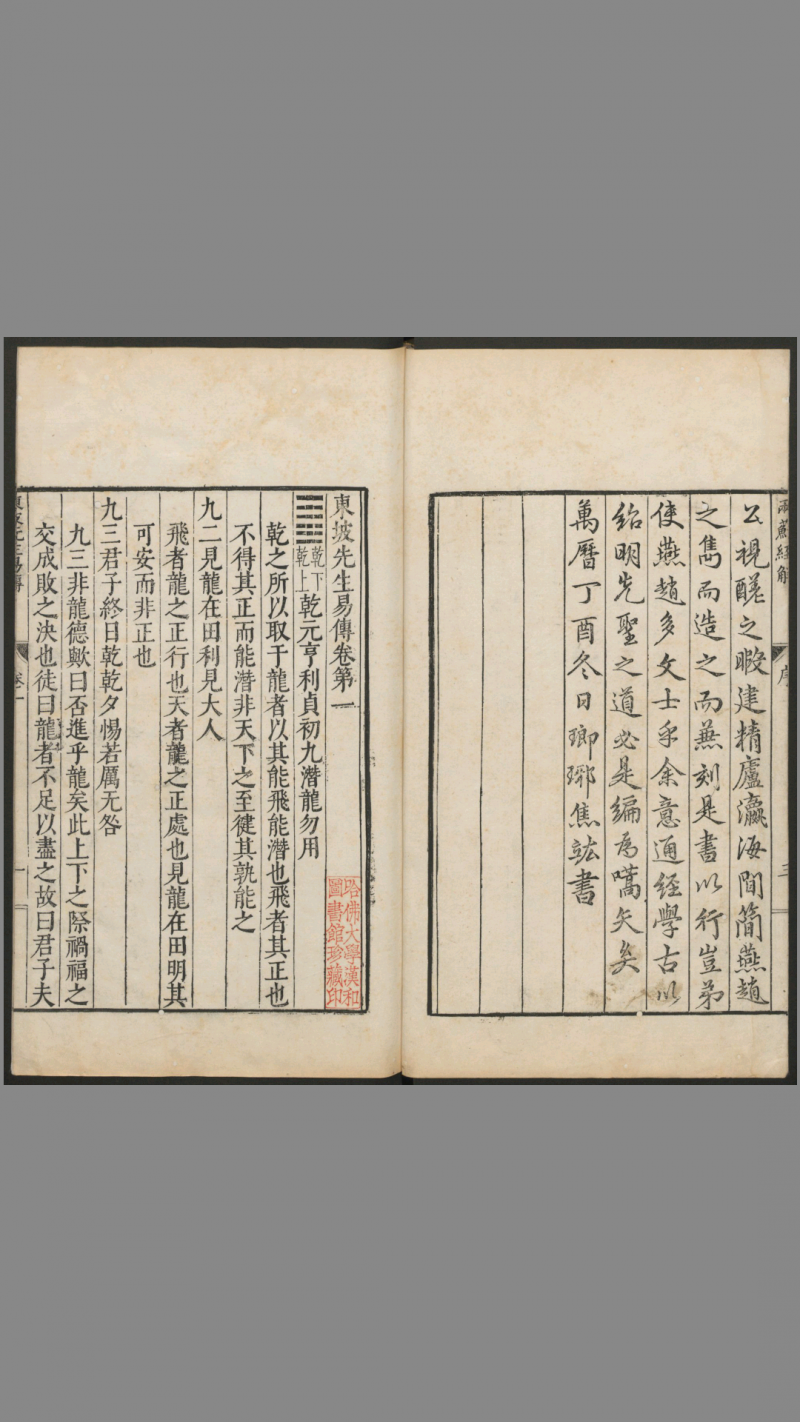 兩蘇經解
序
三
公視醝之暇建精廬瀛海間簡燕趙
之雋而造之而兼刻是書以行豈弟
使燕趙多文士乎余意通經學古以
紹明先聖之道必是編為嚆矢矣
萬曆丁酉冬日瑯琊焦竑書
東坡先生易傳卷第一
乾下
乾上
乾元亨利貞初九潛龍勿用
乾之所以取于龍者以其能飛能潛也飛者其正也
不得其正而能潛非天下之至健其孰能之
九二見龍在田利見大人
飛者龍之正行也天者龍之正處也見龍在田明其
可安而非正也
九三君子終日乾乾夕惕若厲无咎
九三非龍德歟曰否進乎龍矣此上下之際禍福之
交成敗之決也徒曰龍者不足以盡之故曰君子夫
卷一
一
哈佛大學漢和
圖書館珍藏印